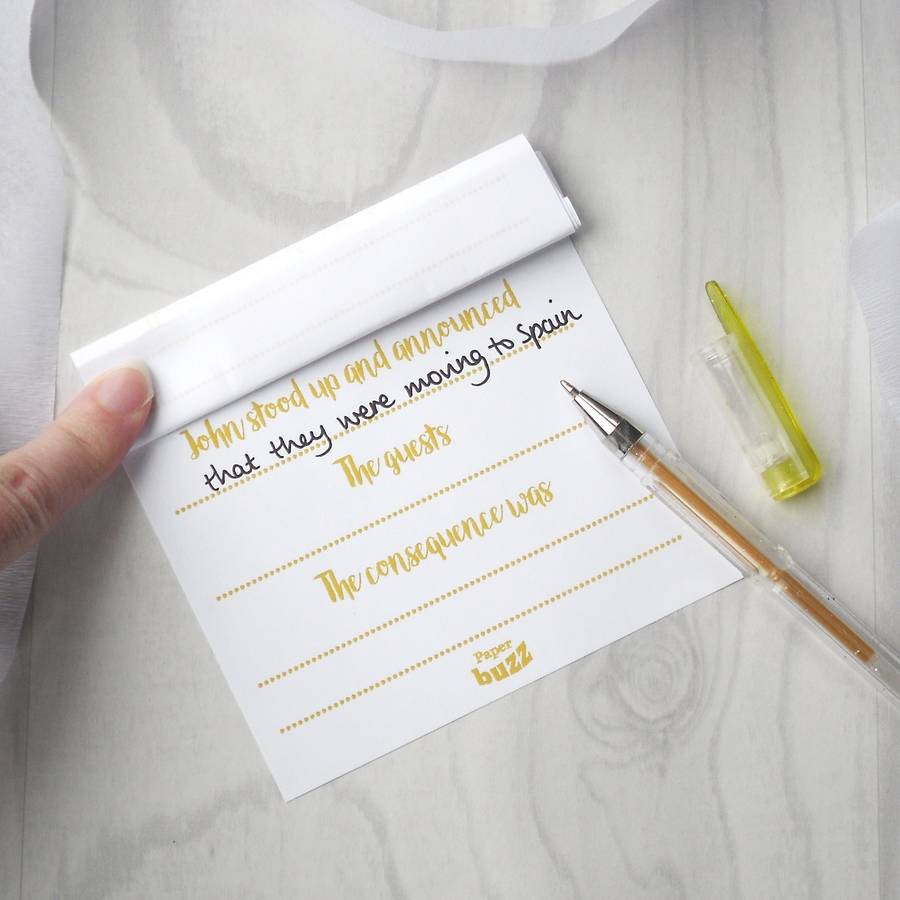 John stood up and announced
that they were moving to Spain
The guests
The consequence was
Paper
buzz